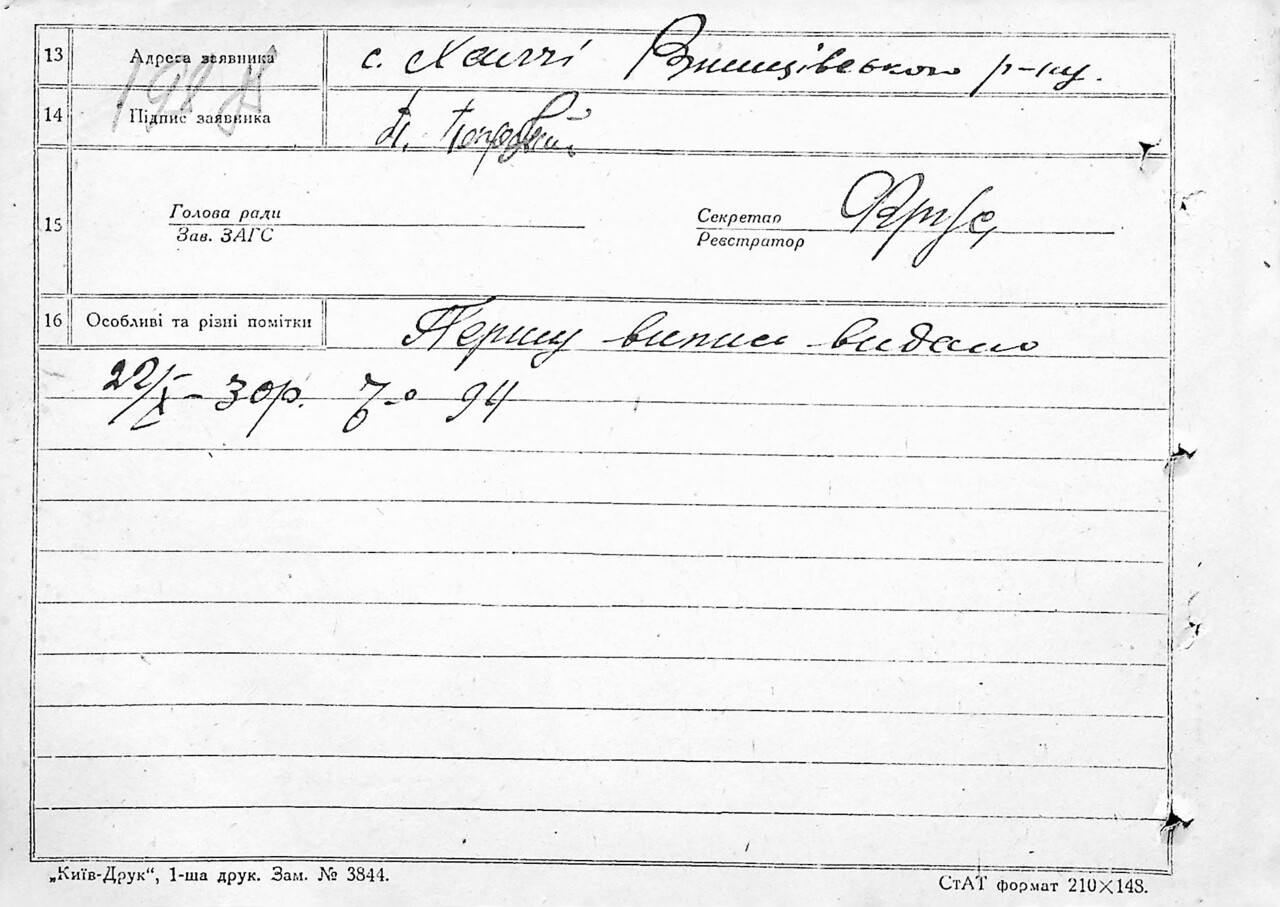 13 Адреса заявника с. Халчі Ржищівського р-ну.
14 Підпис заявника П.
15 Голова ради Секретар
Зав. ЗАГС Реєстратор
16 Особливі та різні помітки Першу випись видано
22/X – 30р. 94
„Київ-Друк“, 1-ша друк. Зам. № 3844.
СтАТ формат 210×148.